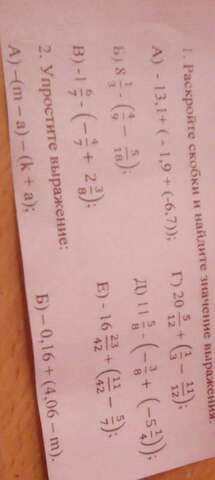 1. Раскройте скобки и найдите значение выражения.
А) - 13,1+ ( - 1,9 + (-6,7)); Г) 20 5/12 + (1/3 − 11/12);
Б) 8 1/3 - (4/9 − 5/18); Д) 11 5/8 - (−3/8 + (−5 1/4));
В) -1 6/7 - (−4/7 + 2 3/8); Е) - 16 23/42 + (11/42 − 5/7);
2. Упростите выражение:
А) −(m − a) − (k + a); Б) − 0,16 + (4,06 − m).